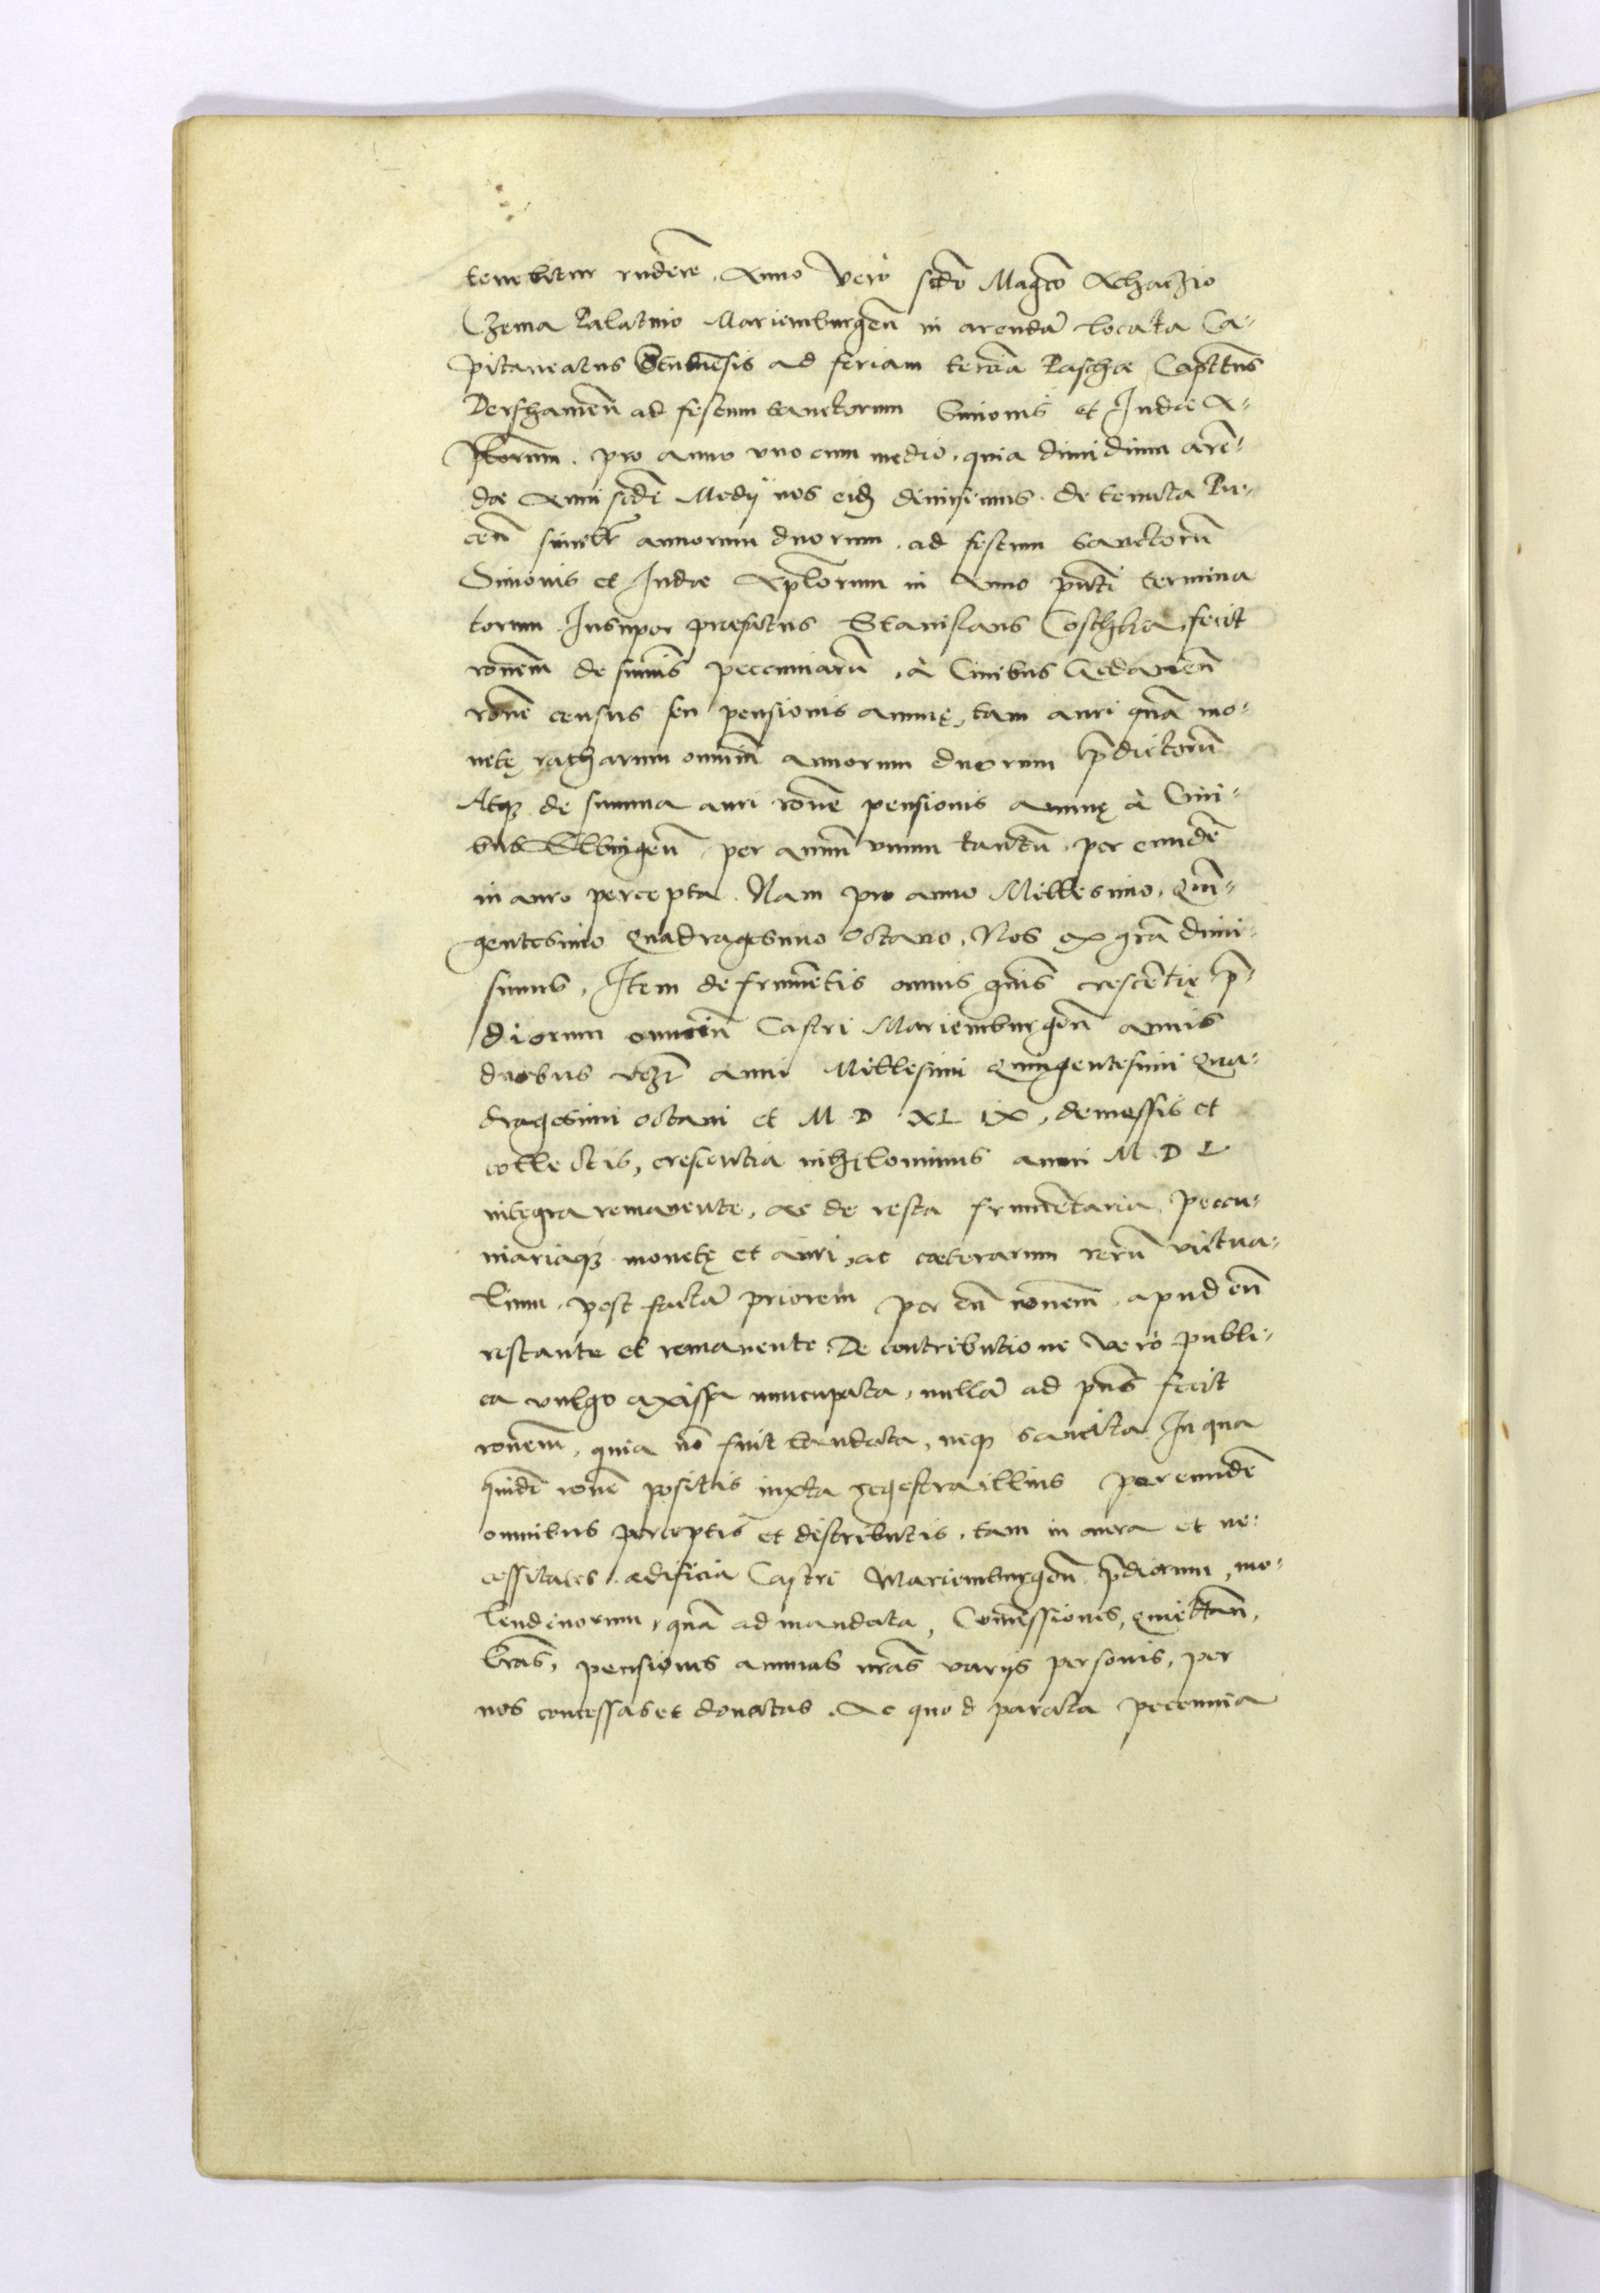 tenebitur rndere. Anno vero scdo Magco Achaczio
Czema Palatino Mariemburgen in arendā locata Ca-
pitaneatus Stumesis ad feriam terciā Paschae Captus
Dershaven ad festum sanctorum Simonis et Judae A-
plorum. pro anno uno cum medio, quia dimidium arē-
dae Anni scdi Medij nos eidē dimisimus. de tenuta Pu-
cen similr annorum duorum, ad festum sanctorū
Simonis et Judae Aplorum in Anno pnti termina
torum. Insuper praefatus Stanislaus Costhka, fecit
ronem de summis pecuniarū, à Civibus Gedanen
rone census seu pensionis annuę, tam auri quā mo-
netę ratharum omniū annorum duorum pdictorū
Atque de summa auri rone pensionis annuę à Civi-
bus Elbingen per annū unum tantū, per eundē
in auro percepta. Nam pro anno Millesimo, Quin-
gentesimo Quadragesimo octavo, Nos ex gra dimi-
simus. Item de frumētis omnis gnis crescētię p-
diorum omniū Castri Mariemburgen annis
duobus vczt anni Millesimi Quingentesimi Qua-
dragesimi octavi et M D XL IX, demessis et
collectis, crescentia nihilominus anni M D L
integra remanente, ac de resta frumētaria, pecu-
niariaque monetę et auri, ac caeterarum rerū victua-
lium, post factā priorem per eū ronem, apud eū
restante et remanente. De contributione vero publi-
ca vulgo axissa nuncupata, nullā ad pns fecit
ronem, quia nō fuit laudata, neque sancita. In qua
quidē rone positis iuxta regestra illius per eundē
omnibus perceptis et distributis, tam in onera et ne-
cessitates aedificia Castri Mariemburgen pdiorum, mo-
lendinorum, quā ad mandata, Comissiones, quiettan,
lras, pensiones annuas nras varijs personis, per
nos concessas et donatas. Ac quod parata pecunia